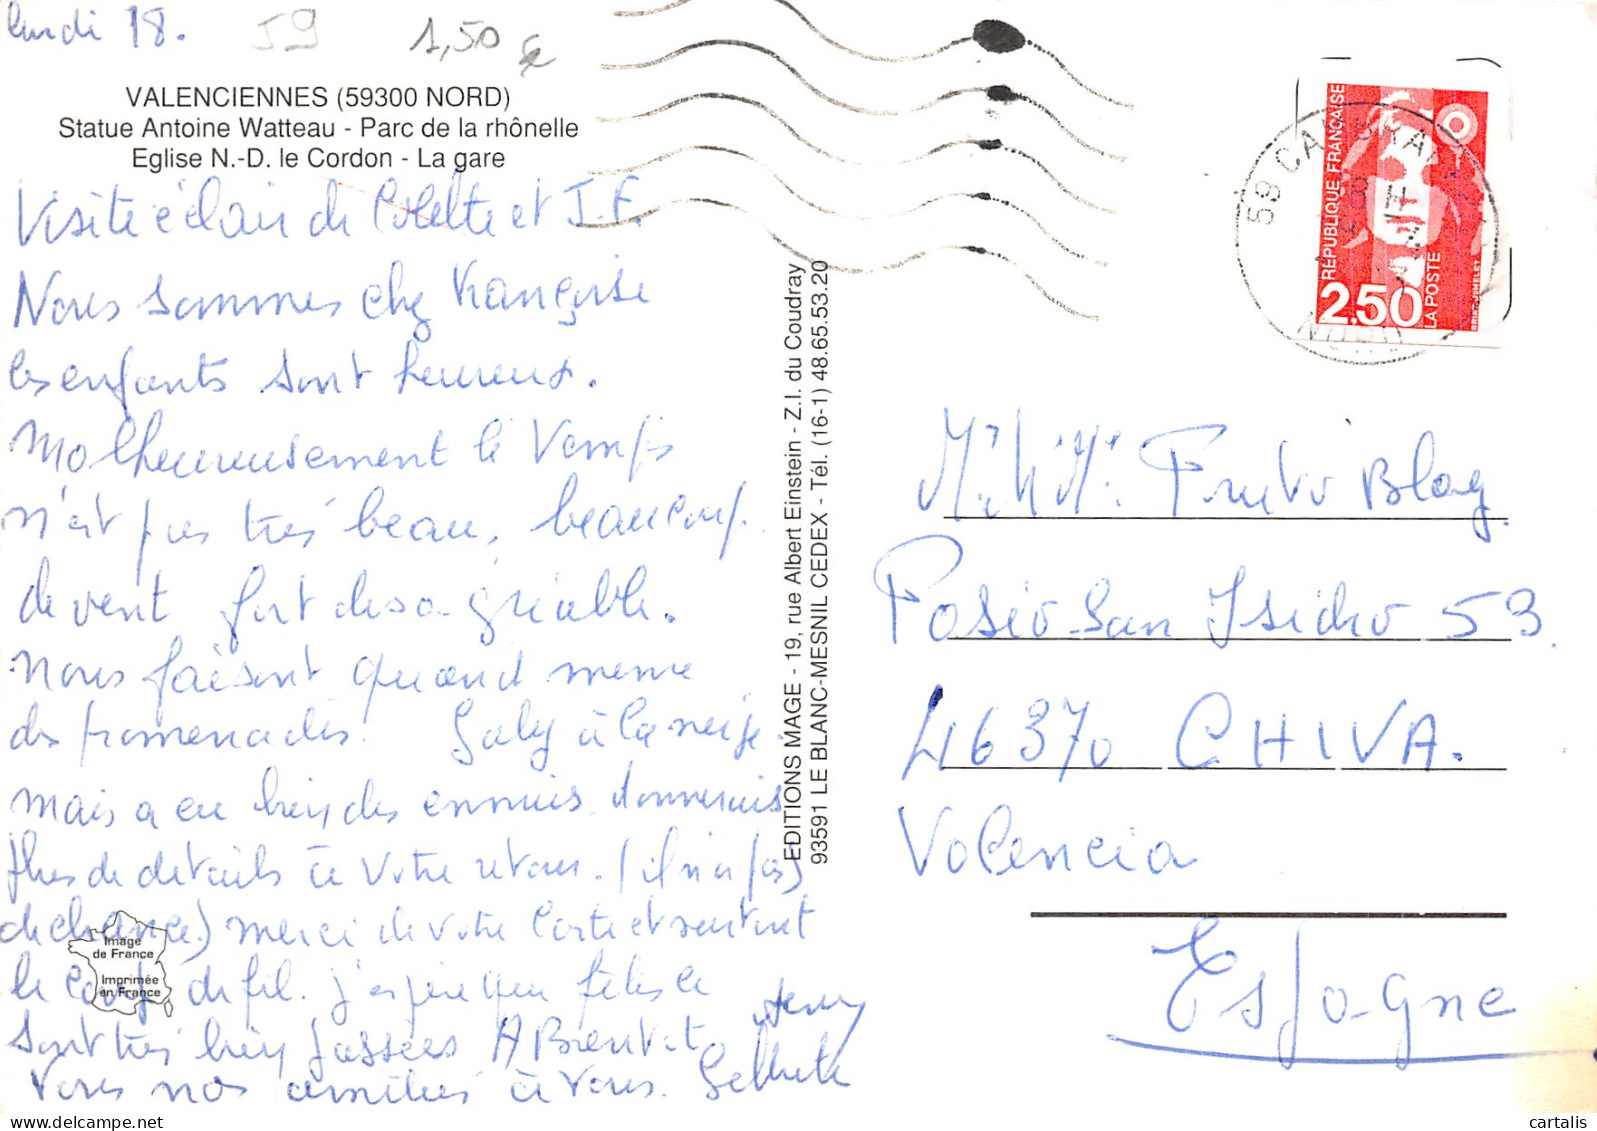 lundi 18.
59
1,50 €
VALENCIENNES (59300 NORD)
Statue Antoine Watteau - Parc de la rhônelle
Eglise N.-D. le Cordon - La gare
Visite éclair de Colette et J.F.
Nous sommes chez Françoise
les enfants sont heureux.
Malheureusement le temps
n'est pas très beau, beaucoup
de vent fort desagréable.
Nous faisont quand meme
des promenades. Gaby à la neige
mais a eu bien des ennuis. donnerais
plus de détails à votre retour. (il n'a pas
de chance.) merci de votre carte et surtout
le coup de fil. j'espère que fêtes ce
sont très bien passées A Bientot
Vous nos amitiés à vous.
EDITIONS MAGE - 19, rue Albert Einstein - Z.I. du Coudray
93591 LE BLANC-MESNIL CEDEX - Tél. (16-1) 48.65.53.20
Image
de France
Imprimée
en France
RÉPUBLIQUE FRANÇAISE
2.50
LA POSTE
59 CAMBRAI
NORD
Fruto Blay
Paseo San Isidro 53.
46370 CHIVA.
Valencia
Espagne
cartalis